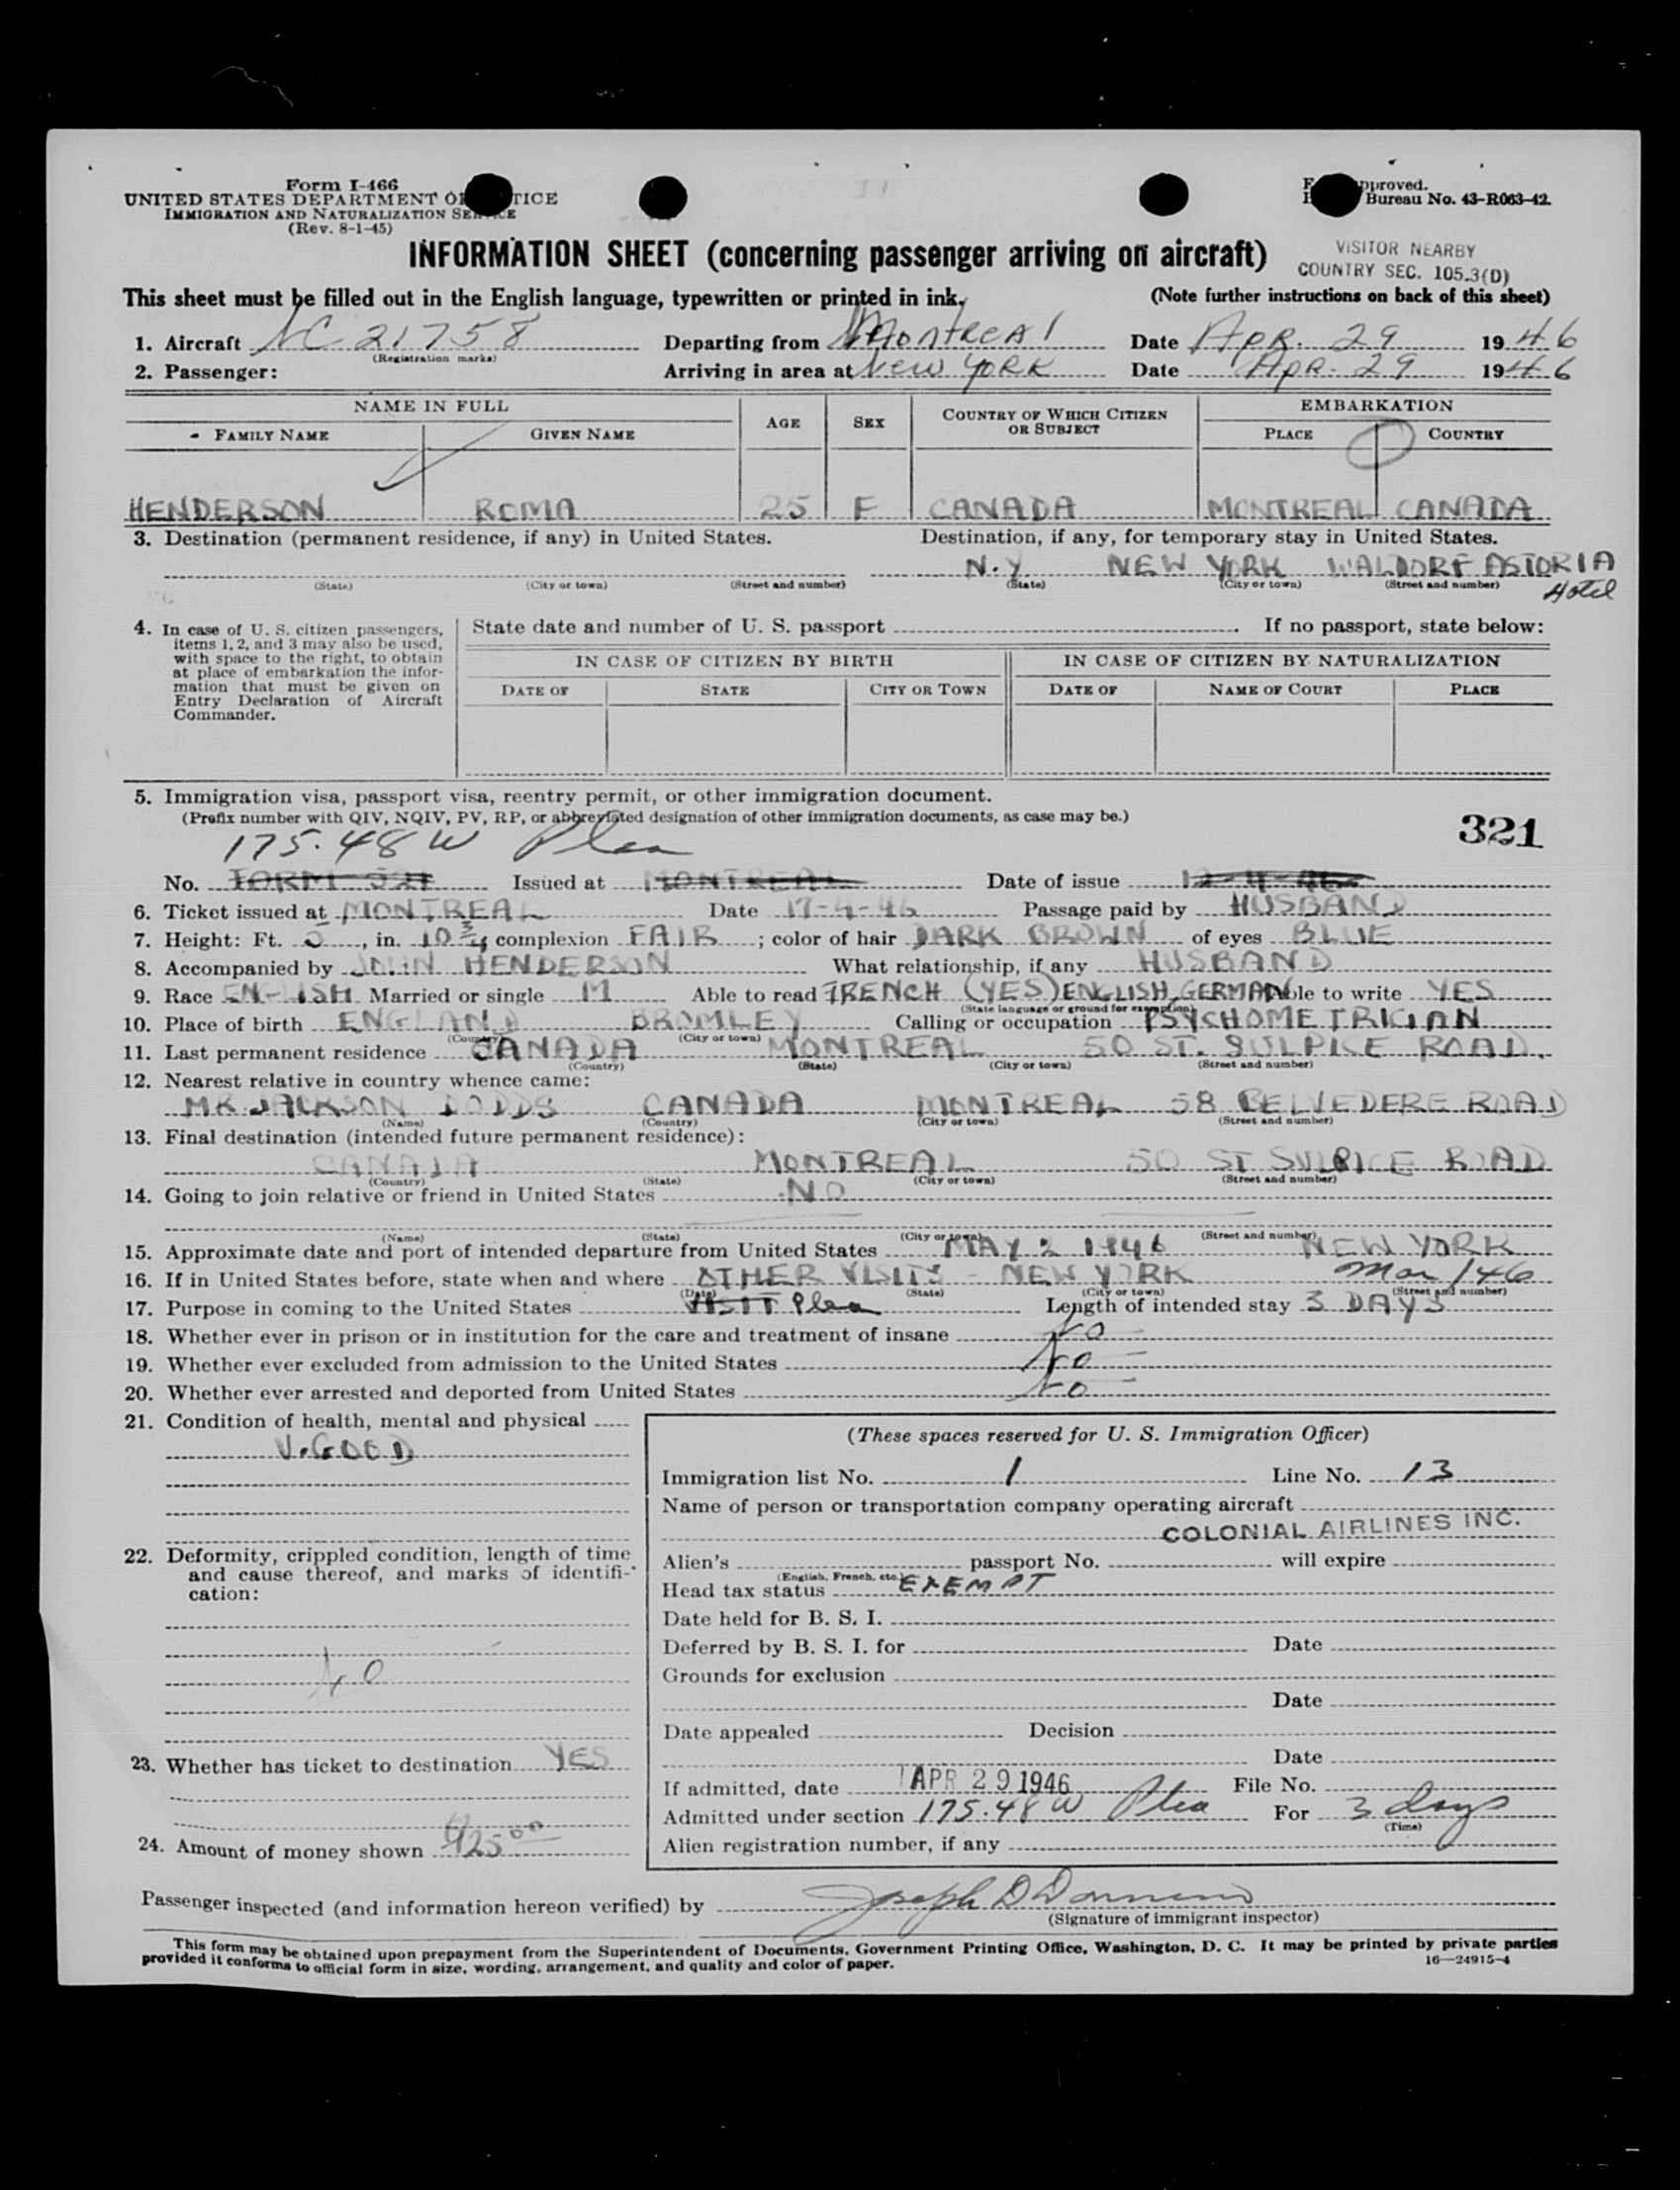 Form I-466
UNITED STATES DEPARTMENT OF JUSTICE
IMMIGRATION AND NATURALIZATION SERVICE
(Rev. 8-1-45)
pproved.
Bureau No. 43-R063-42.
INFORMATION SHEET (concerning passenger arriving on aircraft)
VISITOR NEARBY
COUNTRY SEC. 105.3(D)
This sheet must be filled out in the English language, typewritten or printed in ink. (Note further instructions on back of this sheet)
1. Aircraft NC 21758 Departing from Montreal Date Apr. 29 1946
(Registration marks)
2. Passenger: Arriving in area at New York Date Apr. 29 1946
NAME IN FULL AGE SEX COUNTRY OF WHICH CITIZEN OR SUBJECT EMBARKATION
FAMILY NAME GIVEN NAME PLACE COUNTRY
HENDERSON ROMA 25 F CANADA MONTREAL CANADA
3. Destination (permanent residence, if any) in United States. Destination, if any, for temporary stay in United States.
N.Y NEW YORK WALDORF ASTORIA
Hotel
(State) (City or town) (Street and number) (State) (City or town) (Street and number)
4. In case of U. S. citizen passengers, items 1, 2, and 3 may also be used, with space to the right, to obtain at place of embarkation the information that must be given on Entry Declaration of Aircraft Commander.
State date and number of U. S. passport . If no passport, state below:
IN CASE OF CITIZEN BY BIRTH IN CASE OF CITIZEN BY NATURALIZATION
DATE OF STATE CITY OR TOWN DATE OF NAME OF COURT PLACE
5. Immigration visa, passport visa, reentry permit, or other immigration document.
(Prefix number with QIV, NQIV, PV, RP, or abbreviated designation of other immigration documents, as case may be.)
321
175.48 W Plea
No. FORM 527 Issued at MONTREAL Date of issue 12-4-46
6. Ticket issued at MONTREAL Date 17-4-46 Passage paid by HUSBAND
7. Height: Ft. 5, in. 10 3/4 complexion FAIR; color of hair DARK BROWN of eyes BLUE
8. Accompanied by JOHN HENDERSON What relationship, if any HUSBAND
9. Race ENGLISH Married or single M Able to read FRENCH (YES) ENGLISH, GERMAN Able to write YES
(State language or ground for exemption)
10. Place of birth ENGLAND BROMLEY Calling or occupation PSYCHOMETRICIAN
(Country) (City or town)
11. Last permanent residence CANADA MONTREAL 50 ST. SULPICE ROAD.
(Country) (State) (City or town) (Street and number)
12. Nearest relative in country whence came:
MR JACKSON DODDS CANADA MONTREAL 58 BELVEDERE ROAD
(Name) (Country) (City or town) (Street and number)
13. Final destination (intended future permanent residence):
CANADA MONTREAL 50 ST SULPICE ROAD
(Country) (State) (City or town) (Street and number)
14. Going to join relative or friend in United States NO
(Name) (State) (City or town) (Street and number)
15. Approximate date and port of intended departure from United States MAY 2 1946 NEW YORK
16. If in United States before, state when and where OTHER VISITS - NEW YORK Mar/46
(Date) (State) (City or town) (Street and number)
17. Purpose in coming to the United States VISIT Plea Length of intended stay 3 DAYS
18. Whether ever in prison or in institution for the care and treatment of insane No
19. Whether ever excluded from admission to the United States No
20. Whether ever arrested and deported from United States No
21. Condition of health, mental and physical
V.GOOD
22. Deformity, crippled condition, length of time and cause thereof, and marks of identification:
No
23. Whether has ticket to destination YES
24. Amount of money shown $2500
(These spaces reserved for U. S. Immigration Officer)
Immigration list No. 1 Line No. 13
Name of person or transportation company operating aircraft
COLONIAL AIRLINES INC.
Alien's passport No. will expire
(English, French, etc.)
Head tax status EXEMPT
Date held for B. S. I.
Deferred by B. S. I. for Date
Grounds for exclusion
Date
Date appealed Decision
Date
If admitted, date APR 29 1946 File No.
Admitted under section 175.48 W Plea For 3 days
(Time)
Alien registration number, if any
Passenger inspected (and information hereon verified) by Joseph D
(Signature of immigrant inspector)
This form may be obtained upon prepayment from the Superintendent of Documents, Government Printing Office, Washington, D. C. It may be printed by private parties
provided it conforms to official form in size, wording, arrangement, and quality and color of paper.
16—24915-4